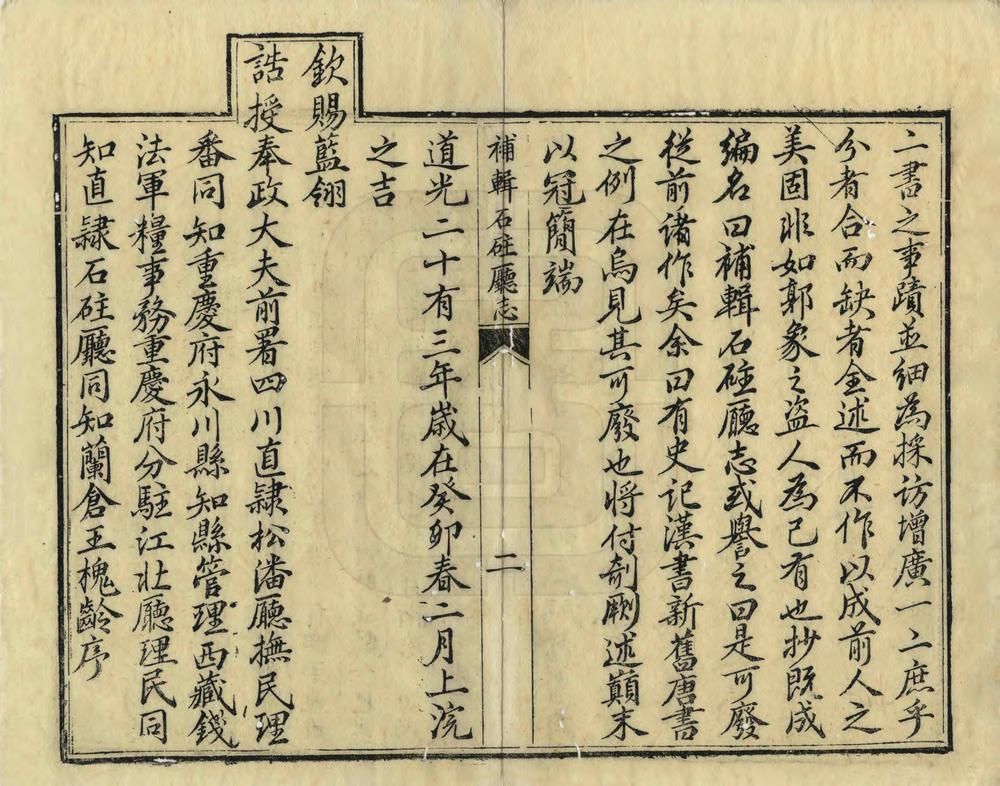 二書之事蹟並細為採訪增廣一二庶乎
分者合而缺者全述而不作以成前人之
美固非如郭象之盜人為己有也抄既成
編名曰補輯石砫廳志或譽之曰是可廢
從前諸作矣余曰有史記漢書新舊唐書
之例在烏見其可廢也將付剞劂述巔末
以冠簡端
補輯石砫廳志
二
道光二十有三年歲在癸卯春二月上浣
之吉
欽賜藍翎
誥授奉政大夫前署四川直隸松潘廳撫民理
番同知重慶府永川縣知縣管理西藏錢
法軍糧事務重慶府分駐江北廳理民同
知直隸石砫廳同知蘭倉王槐齡序